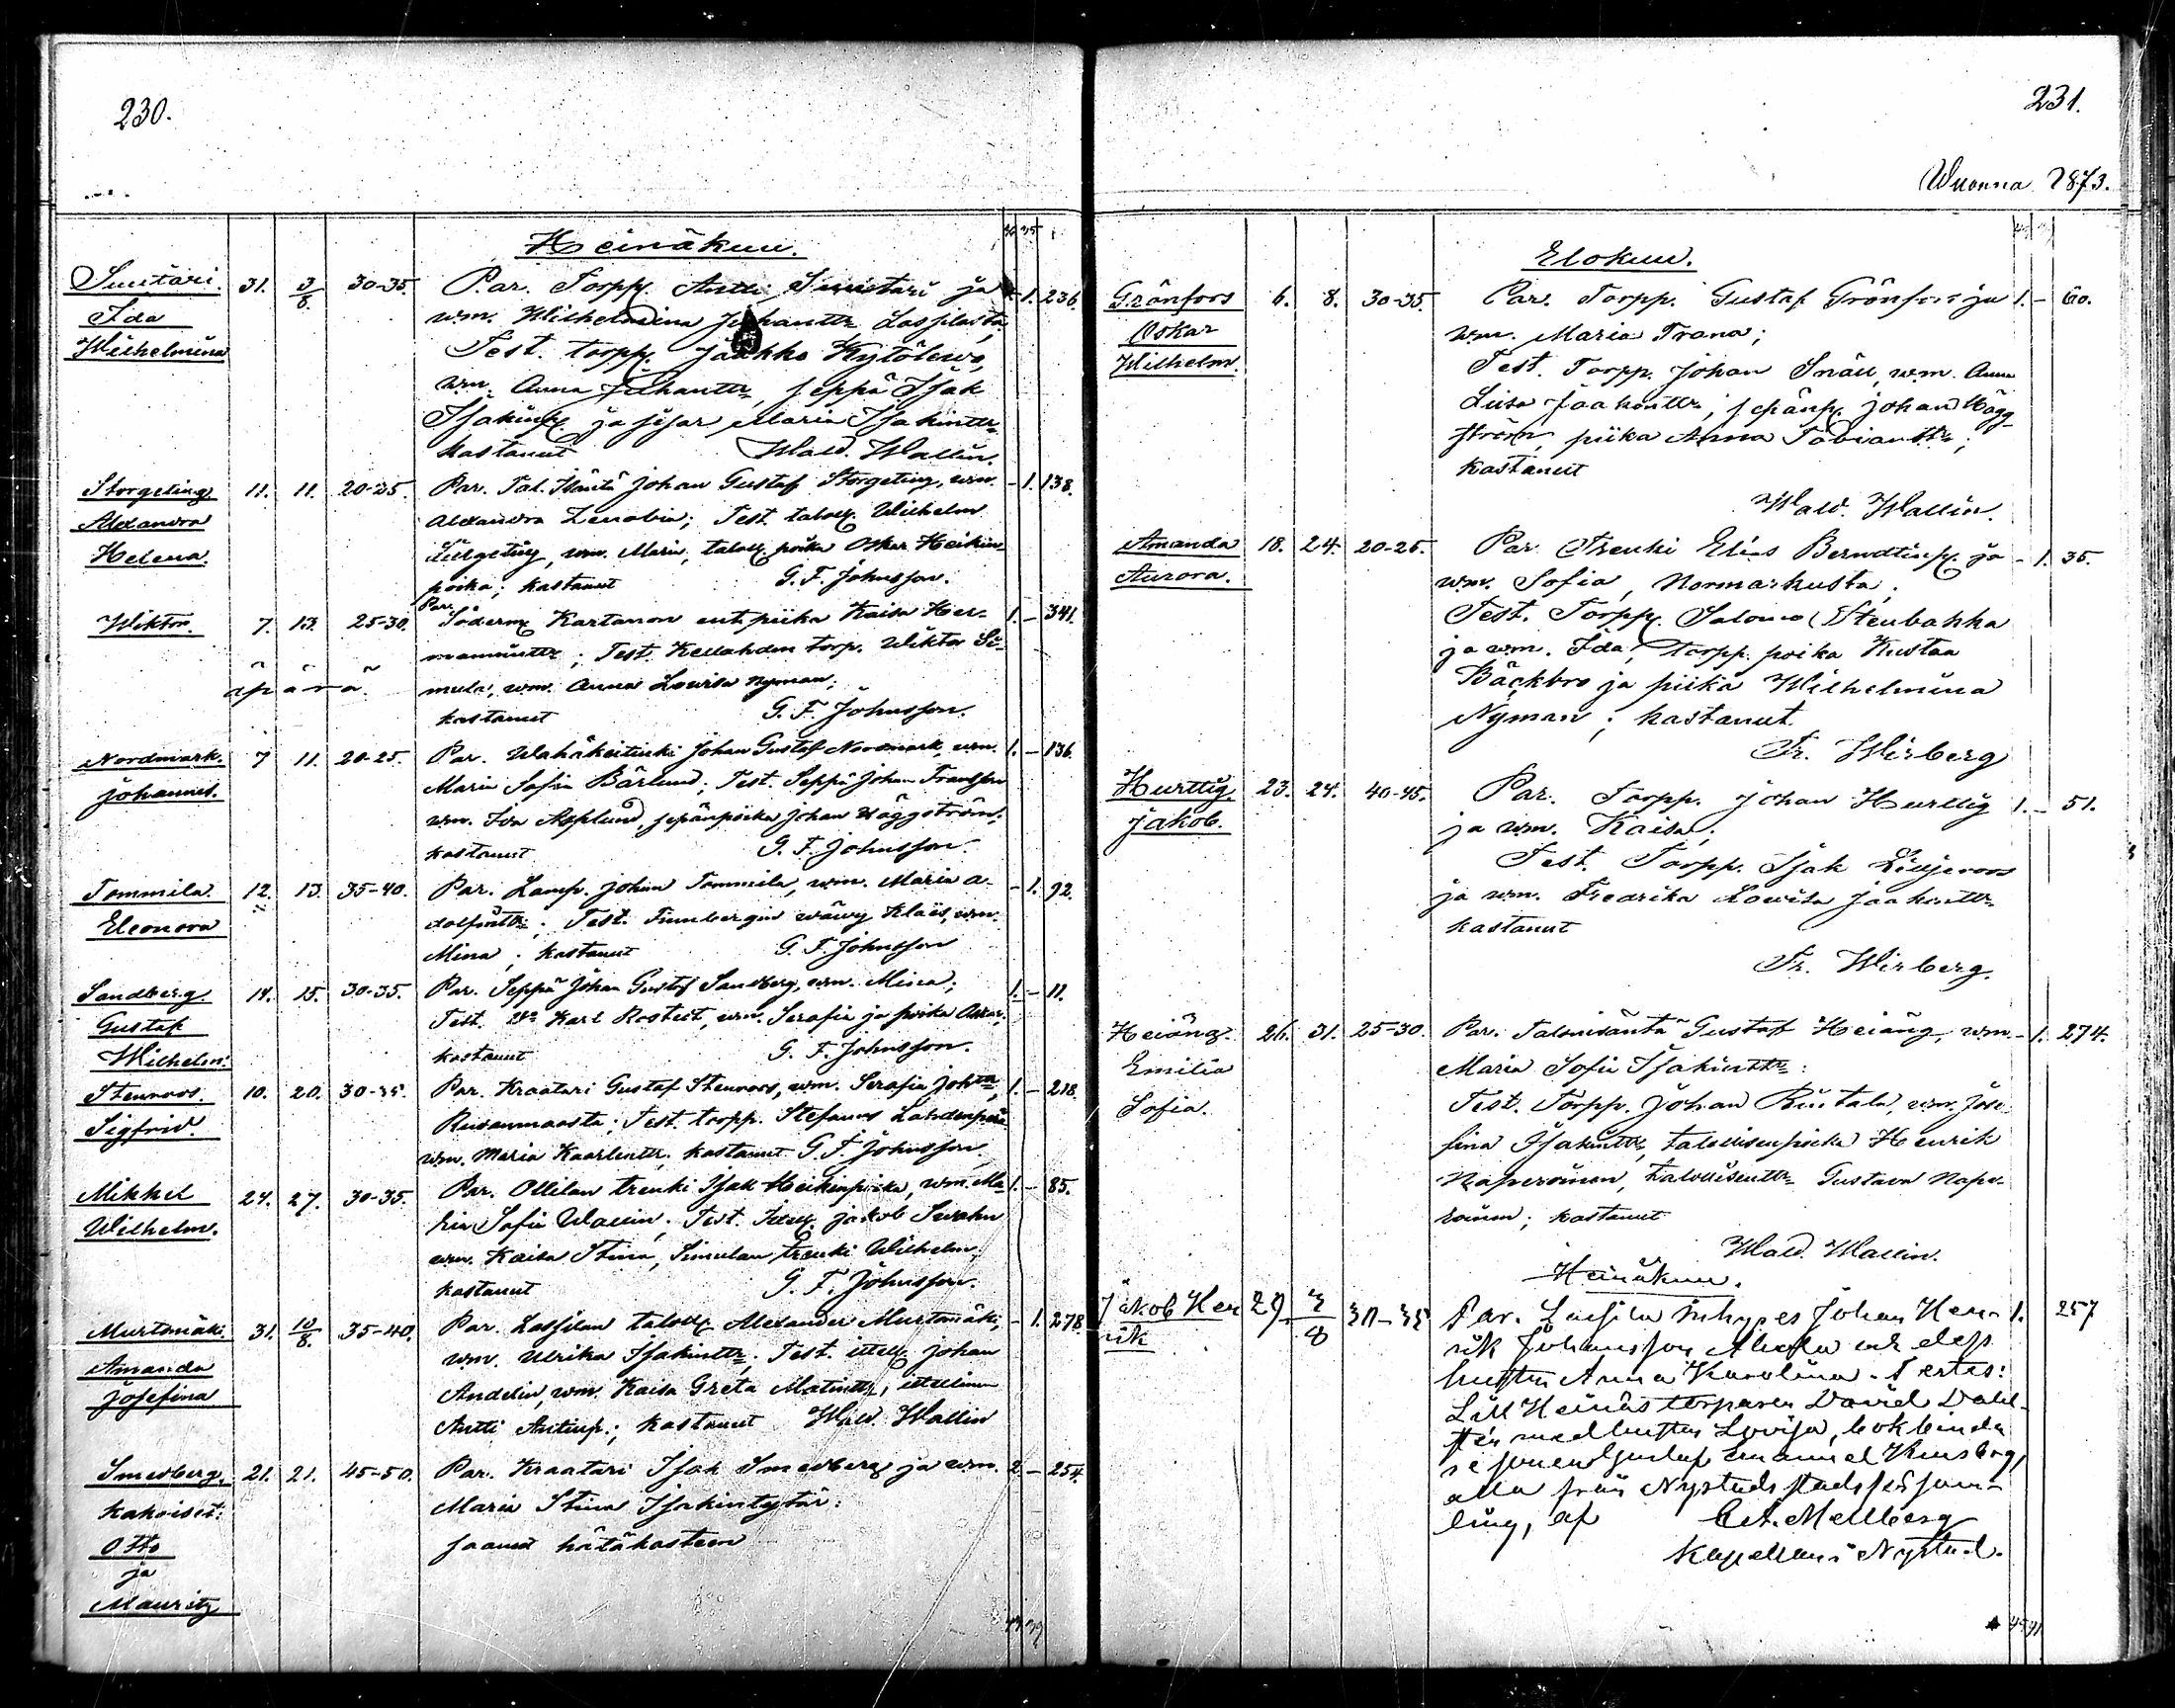 230.
Heinäkuu.
Suutari. 31. 3/8. 30-35. Par. Torpp. Antti Suutari ja - 1. 236.
Ida wm. Wilhelmina Juhantr
Wilhelmina Test. torpp. Jaakko Kytölewa,
wm. Anna Juhantr, seppä Isak
Isakinp. ja sisar Maria Isakintr
kastanut Wald. Wallin.
Storgeting 11. 11. 20-25. Par. Tal. Isäntä Johan Gustaf Storgeting, wm. - 1. 138.
Alexandra Alexandra Zenobia; Test. talol. Wilhelm
Helena. wm. Maria, talol. poika Oskar Heikin-
poika; kastanut G. F. Johnsson.
Wiktor. 7. 13. 25-30. Par. Söderm Kartanon ent. piika Kaisa Her- 1. - 341.
manintr; Test. Kellahden torp. Wiktor Si-
äpärä. mula, wm. Anna Lowisa Nyman;
kastanut G. F. Johnsson.
Nordmark. 7 11. 20-25. Par. Wähäkeitinki Johan Gustaf Nordmark, wm. 1. - 136.
Johannes. Maria Sofia Bärlund; Test. Seppä Johan Fransson
wm. Ida Asplund, sepänpoika Johan Häggström;
kastanut G. F. Johnsson.
Tommila. 12. 13. 35-40. Par. Lamp. Johan Tommila, wm. Maria A- - 1. 92.
Eleonora dolfintr; Test. Finnbergin wäwy Klaës, wm.
Mina; kastanut G. F. Johnsson
Sandberg. 14. 15. 30-35. Par. Seppä Johan Gustaf Sandberg, wm. Mina; 1. - 11.
Gustaf Test. Karl Rostedt, wm. Serafia ja poika Oskar;
Wilhelm. kastanut G. F. Johnsson.
Stenroos. 10. 20. 30-35. Par. Kraatari Gustaf Stenroos, wm. Serafia 1. - 218.
Sigfrid. Ruosanmaasta; Test. torpp. Stefanus Lahdenperä
wm. Maria Kaarlentr. kastanut G. F. Johnsson
Mikkel 24. 27. 30-35. Par. Ollilan trenki Isak Heikinpoika, wm. Ma- 1. - 85.
Wilhelm. ria Sofia Wallin; Test. Jakob Swahn
wm. Kaisa Stina, Simulan trenki Wilhelm;
kastanut G. F. Johnsson.
Murtomäki. 31. 10/8. 35-40. Par. Lassilan talol. Alexander Murtomäki, - 1. 278.
Amanda wm. Ulrika Isakintr; Test. ittell. Johan
Josefina Andelin, wm. Kaisa Greta Matintr, ittellinen
Antti Antinp.; kastanut Wald. Wallin
Smedberg. 21. 21. 45-50. Par. Kraatari Isak Smedberg ja wm. 2 - 254.
Kakoiset: Maria Stina Isakintytär:
Otto saanut hätäkasteen
ja
Mauritz
231.
Wuonna 1873.
Elokuu.
Grönfors 6. 8. 30-35. Par. Torpp. Gustaf Grönfors ja 1. - 60.
Oskar wm. Maria Trana;
Wilhelm. Test. Torpp. Johan Snäll, wm. Anna
Liisa Jaakontr, sepänp. Johan Hägg-
ström, piika Anna Tobiantr;
kastanut
Wald. Wallin.
Amanda 18. 24. 20-25. Par. Trenki Elias Berndtinp. ja - 1. 35.
Aurora. wm. Sofia, Normarkusta;
Test. Torpp. Salomo Stenbakka
ja wm. Ida, torpp. poika Kustaa
Bäckbro ja piika Wilhelmiina
Nyman; kastanut.
Fr. Wirberg
Hurttig. 23. 24. 40-45. Par. Torpp. Johan Hurttig 1. - 51.
Jakob. ja wm. Kaisa;
Test. Torpp. Isak Liljeroos
ja wm. Fredrika Lowisa Jaakontr
kastanut
Fr. Wirberg.
Heiäng. 26. 31. 25-30. Par. Talonisäntä Gustaf Heiäng, wm. - 1. 274.
Emilia Maria Sofia Isakintr:
Sofia. Test. Torpp. Johan Riutala, wm. Jose-
fina Isakintr, talollisenpoika Henrik
talollisentr Gustava
kastanut
Wald. Wallin.
Heinäkuu.
Jakob Hen 29 3/8 30-35 Par. Lassila inhyses Johan Hen- 1. 257
rik rik Johansson och dess
hustru Anna Karolina. Testes:
Lill Heinäs torparen David Dahl-
stén med hustru Lovisa, bokbinda-
resonen Gustaf Emanuel
alla från Nystads stadsförsam-
ling, af C. A. Mellberg
Kapellan i Nystad.